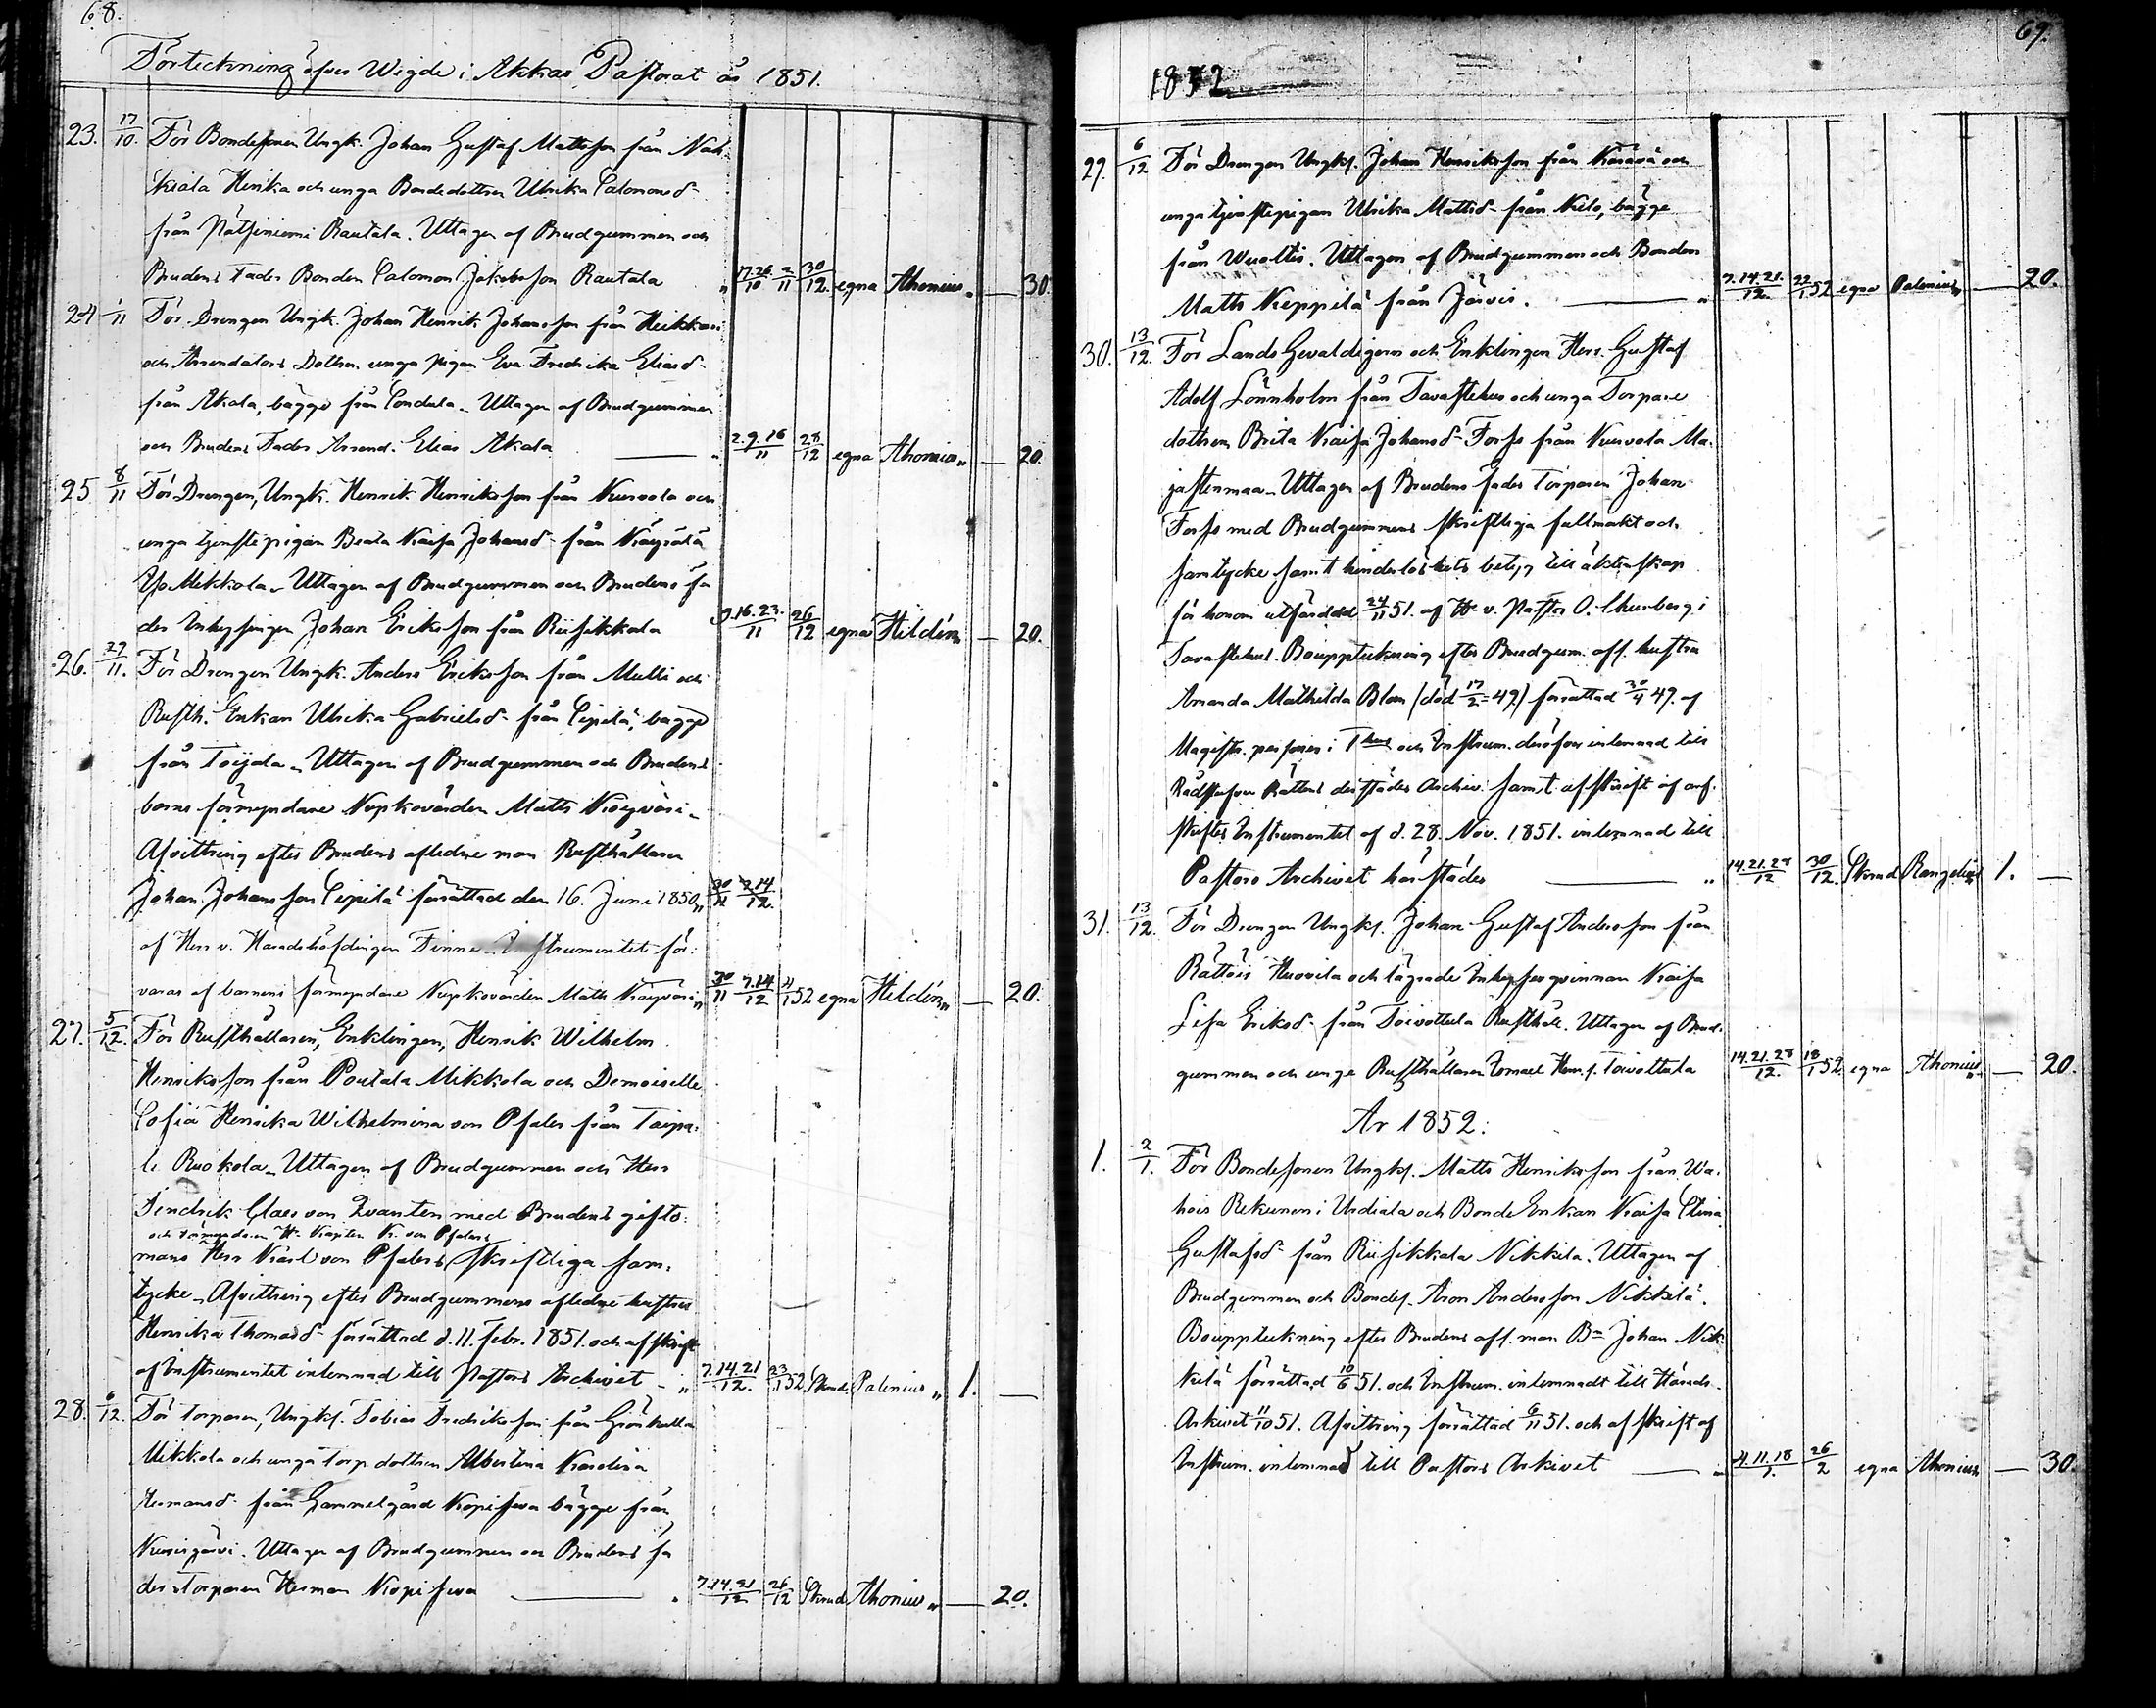 68.
Förteckning öfver Wigde i Akkas Pastorat år 1851.
23. 17/10. För Bondesonen Ungk. Johan Gustaf Mattsson från Näh-
kiala Herika och unga Bondedottren Ulrika Salomonsd-
från Pätsiniemi Rautala. Uttagen af Brudgummen och
Brudens Fader Bonden Salomon Jakobsson Rautala „ 17.26./10 2/11 30/12. egna Ahonius „ — 30.
24 1/11 För Drengen Ungk. Johan Henrik Johansson från Heikkari
och Arendators Dottren unga pigan Eva Fredrika Eliasd-
från Akala, bägge från Sondula. Uttagen af Brudgummen
och Brudens Fader Arrend. Elias Akala — „ 2.9.16/11 28/12 egna Ahonius „ — 20.
25 8/11 För Drengen, Ungk. Henrik Henriksson från Kurvola och
unga tjenstepigan Beata Kaisa Johansd- från Käyrälä
Yli Mikkola. Uttagen af Brudgummen och Brudens fa
der Inhysingen Johan Eriksson från Riisikkala 9.16.23./11 26/12 egna Hildén „ — 20.
26. 29/11. För Drengen Ungk. Anders Eriksson från Mulli och
Rusth. Enkan Ulrika Gabrielsd- från Sipilä, bägge
från Toijala. Uttagen af Brudgummen och Brudens
barns förmyndare Nypkovärden Matts Käyväri.
Afvittring efter Brudens aflidne man Rusthållaren
Johan Johansson Sipilä förrättad den 16. Juni 1850, 30/11 7.14/12.
af Herr v. Häradshöfdingen Finne. Instrumentet för-
varas af barnens förmyndare Nypkovärden Matts Käyväri „ 30/11 7.14/12 4/1 52 egna Hildén „ — 20.
27. 5/12. För Rusthållaren, Enklingen, Henrik Wilhelm
Henriksson från Pontala Mikkola och Demoiselle
Sofia Henrika Wilhelmina von Pfaler från Taipa-
le Ruokola. Uttagen af Brudgummen och Herr
Findrik Claes von Qvanten med Brudens gifto-
och förmyndaren Hr Kapiten Kr. von Pfalers
mans Herr Karl von Pfalers skriftliga sam-
tycke. Afvittring efter Brudgummens aflidne hustru
Henrika Thomasd- förrättad d. 11. Febr. 1851. och afskrift
af Instrumentet inlemnad till Pastors Archivet „ 7.14.21/12. 23/1 52 Skrud Palenius „ 1. —
28. 6/12. För Torparen, Ungkl. Tobias Fredriksson från Grönkulla
Mikkola och unga torp dottren Albertina Karolina
Hermansd- från Gammelgård Kopiseva bägge från
Kurisjärvi. Uttagen af Brudgummen och Brudens fa
der Torparen Herman Kopiseva — „ 7.14.21/12 26/12 Skrud Ahonius „ — 20.
69.
1852
29. 6/12 För Drengen Ungkl. Johan Henriksson från Karava och
unga tjenstepigan Ulrika Mattsd- från Kelo, bägge
från Wualtis. Uttagen af Brudgummen och Bonden
Matts Keppilä från Järvis. — „ 7.14.21./12. 22/1 52 egna Palenius „ — 20.
30. 13/12. För Lands Gevaldigern och Enklingen Herr Gustaf
Adolf Lönnholm från Tavastehus och unga Torpare
dottren Brita Kaisa Johansd- Forss från Kurvola Ma-
jastenmaa. Uttagen af Brudens fader Torparen Johan
Forss med Brudgummens skriftliga fullmakt och
samtycke samt hinderlöshets betyg till äktenskap
för honom utfärdad 24/11 51. af Hr v. Pastor O. Churberg i
Tavastehus. Bouppteckning efter Brudgum. afl. hustru
Amanda Mathilda Blom (död 17/2 = 49) förrättad 30/4 49. af
Magistr. personer i Thus och Instrum. deröfver inlemnad till
Rådstufvu Rättens derstädes Archiv. samt afskrift af arf-
skiftes Instrumentet af d. 28. Nov. 1851. inlemnad till
Pastors Archivet härstädes — „ 14.21.28/12 30/12. Skrud Rangelius „ 1. —
31. 13/12. För Drengen Ungkl. Johan Gustaf Andersson från
Rättöis Heovila och lägrade Inhysesqvinnan Kaisa
Lisa Eriksd- från Toivottula Rusthåll. Uttagen af Brud-
gummen och unge Rusthållaren Ismael Henr.s. Toivottula 14.21.28/12. 18/1 52 egna Ahonius „ — 20.
År 1852:
1. 2/1. För Bondesonen Ungkl. Matts Henriksson från Wa-
hois Rekunen i Urdiala och Bonde Enkan Kaisa Stina
Gustafsd- från Riisikkala Nikkilä. Uttagen af
Brudgummen och Bondes. Aron Andersson Nikkilä.
Bouppteckning efter Brudens afl. man Bn Johan Nik-
kilä förrättad 10/6 51. och Instrum. inlemnadt till Härads-
Arkivet 11/10 51. Afvittring förrättad 6/11 51. och afskrift af
Instrum. inlemnad till Pastors Arkivet — „ 4.11.18/1. 26/2 egna Ahonius — 30.